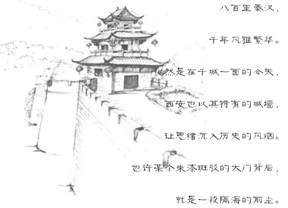 八百里秦汉，
千年风雅繁华。
然是在千城一面的今天，
西安也以其特有的城墙，
让思绪沉入历史的风烟。
也许某个朱漆斑驳的大门背后，
就是一段隔海的前尘。